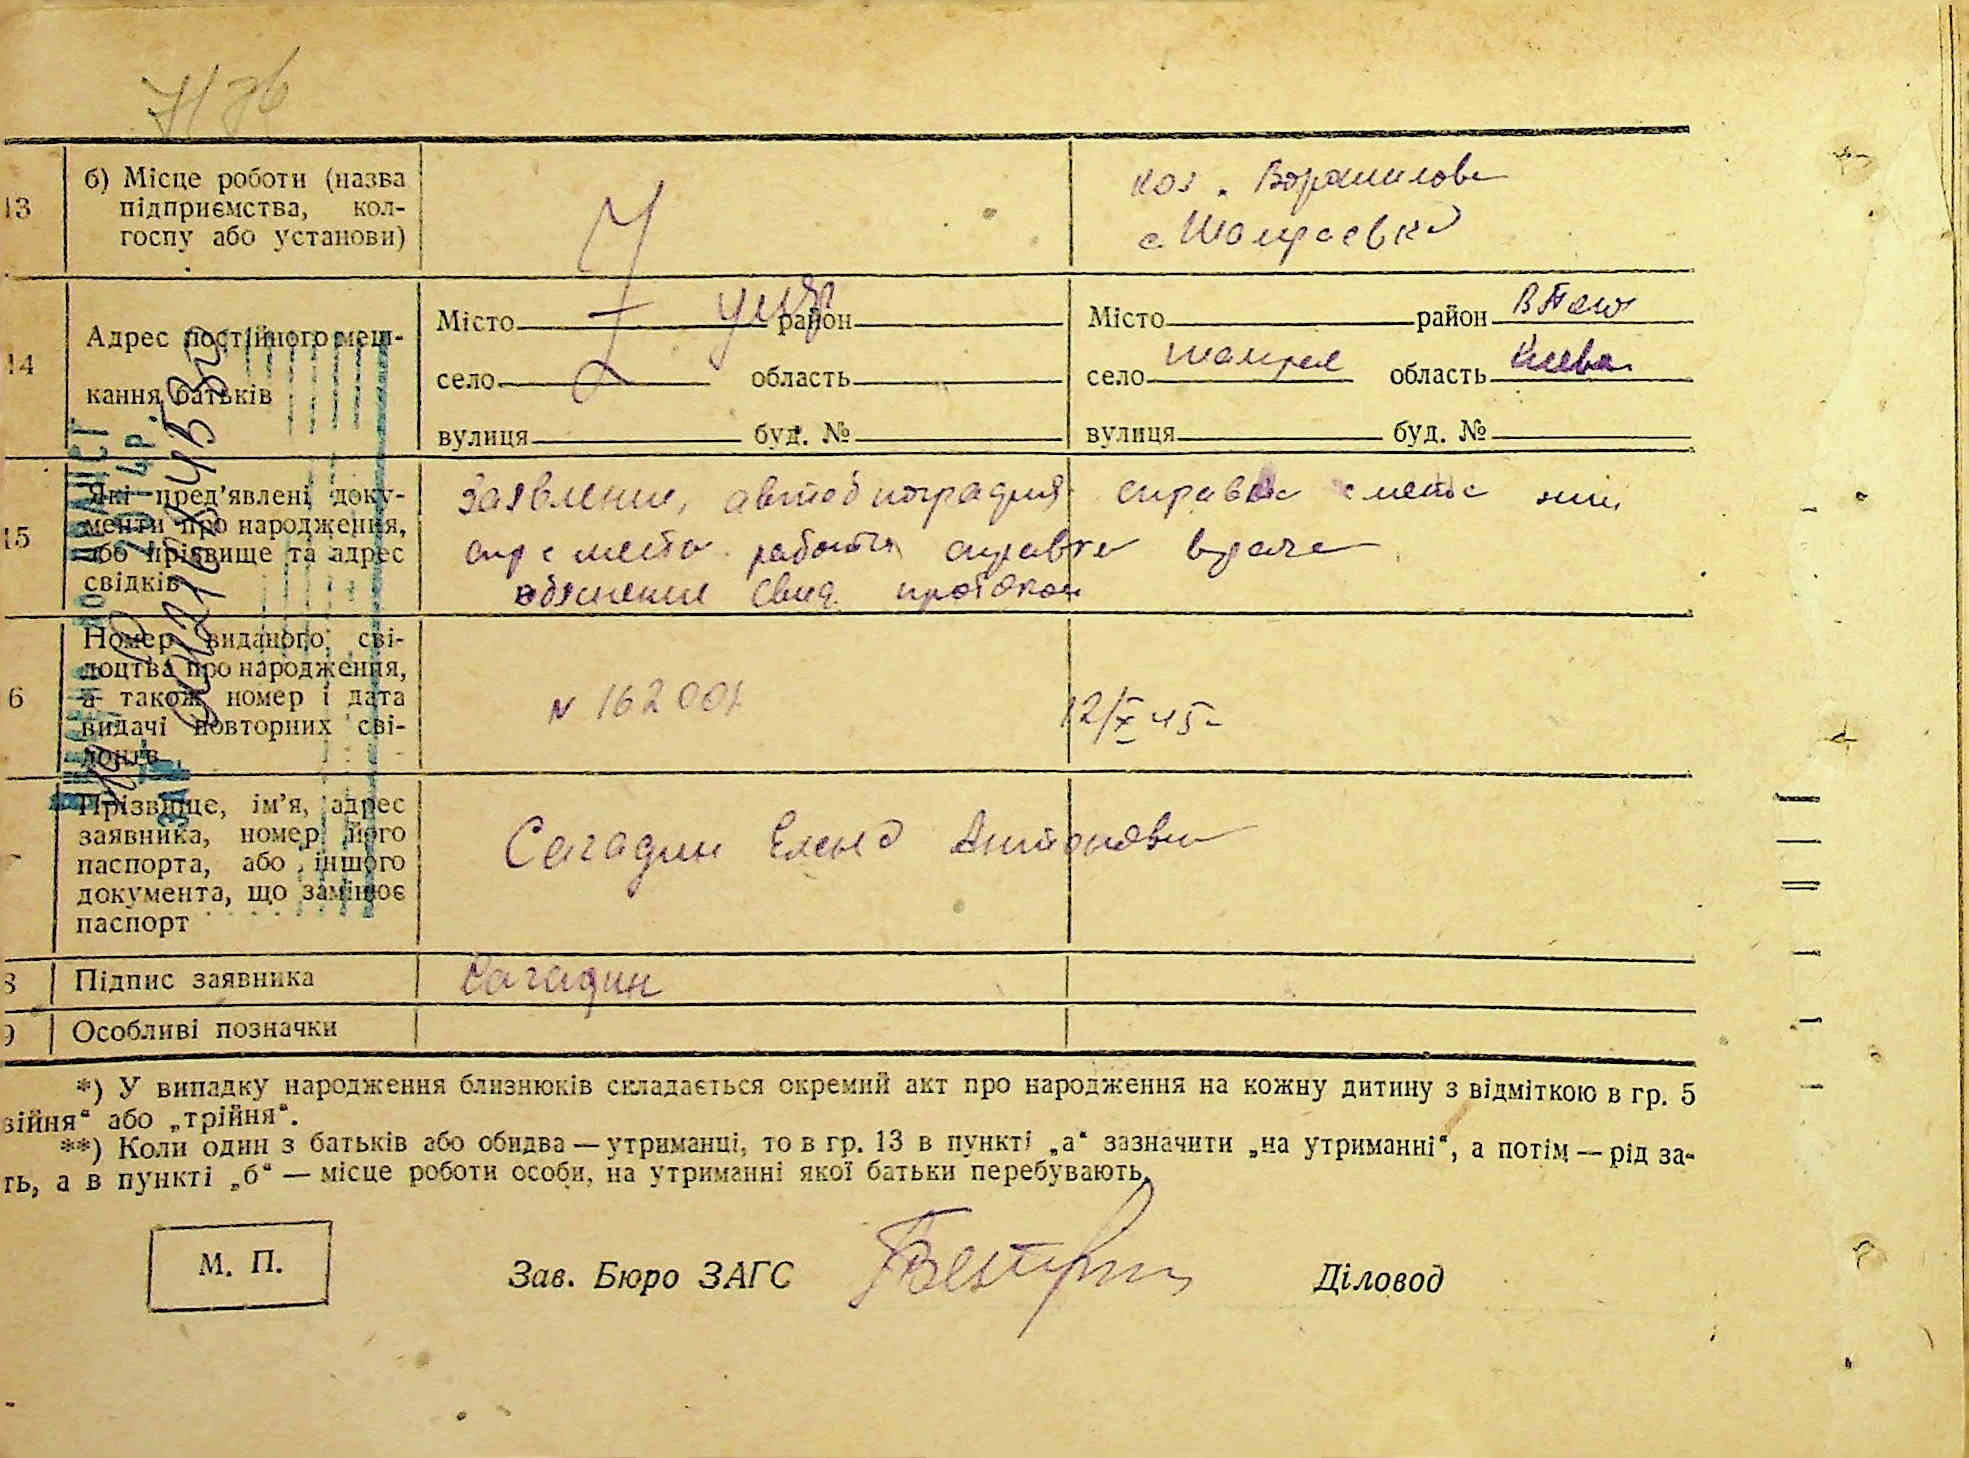 13
б) Місце роботи (назва
підприємства, кол-
госпу або установи)
кол. Ворошилова
с. Шамраевка
14
Адрес постійного меш-
кання батьків
Місто район
село область
вулиця буд. №
Місто район
село Шамрае область Киевс
вулиця буд. №
15
Які пред’явлені доку-
менти про народження,
або прізвище та адрес
свідків
Заявление, автобиография справка с места жит
спр с места работы справка врача
объяснение свид. протокол
6
Номер виданого сві-
доцтва про народження,
а також номер і дата
видачі повторних сві-
доцтв
N 162001
12/X 45
Прізвище, ім’я, адрес
заявника, номер його
паспорта, або іншого
документа, що замінює
паспорт
Сагадин Елена Антоновна
8
Підпис заявника
Сагадин
9
Особливі позначки
*) У випадку народження близнюків складається окремий акт про народження на кожну дитину з відміткою в гр. 5
війня“ або „трійня“.
**) Коли один з батьків або обидва — утриманці, то в гр. 13 в пункті „а“ зазначити „на утриманні“, а потім — рід за-
ть, а в пункті „б“ — місце роботи особи, на утриманні якої батьки перебувають.
М. П.
Зав. Бюро ЗАГС
Діловод